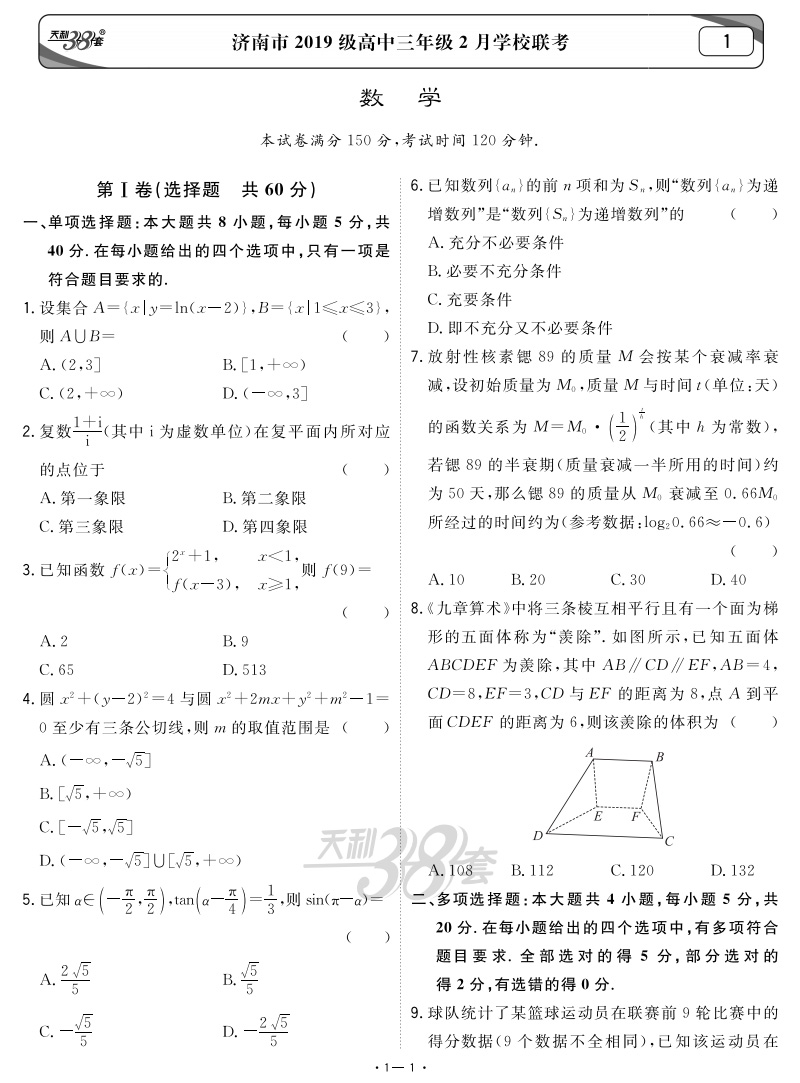 天利38套®
济南市 2019 级高中三年级 2 月学校联考
1
数 学
本试卷满分 150 分,考试时间 120 分钟.
第Ⅰ卷(选择题 共 60 分)
一、单项选择题:本大题共 8 小题,每小题 5 分,共
40 分.在每小题给出的四个选项中,只有一项是
符合题目要求的.
1.设集合 A={x|y=ln(x-2)},B={x|1≤x≤3},
则 A∪B= ( )
A.(2,3] B.[1,+∞)
C.(2,+∞) D.(-∞,3]
2.复数(1+i)/i(其中 i 为虚数单位)在复平面内所对应
的点位于 ( )
A.第一象限 B.第二象限
C.第三象限 D.第四象限
3.已知函数 f(x)={2^x+1, x<1, f(x-3), x≥1, 则 f(9)=
( )
A.2 B.9
C.65 D.513
4.圆 x²+(y-2)²=4 与圆 x²+2mx+y²+m²-1=
0 至少有三条公切线,则 m 的取值范围是 ( )
A.(-∞,-√5]
B.[√5,+∞)
C.[-√5,√5]
D.(-∞,-√5]∪[√5,+∞)
5.已知 α∈(-π/2,π/2),tan(α-π/4)=1/3,则 sin(π-α)=
( )
A.2√5/5 B.√5/5
C.-√5/5 D.-2√5/5
6.已知数列{aₙ}的前 n 项和为 Sₙ,则“数列{aₙ}为递
增数列”是“数列{Sₙ}为递增数列”的 ( )
A.充分不必要条件
B.必要不充分条件
C.充要条件
D.即不充分又不必要条件
7.放射性核素锶 89 的质量 M 会按某个衰减率衰
减,设初始质量为 M₀,质量 M 与时间 t(单位:天)
的函数关系为 M=M₀·(1/2)^(t/h)(其中 h 为常数),
若锶 89 的半衰期(质量衰减一半所用的时间)约
为 50 天,那么锶 89 的质量从 M₀ 衰减至 0.66M₀
所经过的时间约为(参考数据:log₂0.66≈-0.6)
( )
A.10 B.20 C.30 D.40
8.《九章算术》中将三条棱互相平行且有一个面为梯
形的五面体称为“羡除”.如图所示,已知五面体
ABCDEF 为羡除,其中 AB∥CD∥EF,AB=4,
CD=8,EF=3,CD 与 EF 的距离为 8,点 A 到平
面 CDEF 的距离为 6,则该羡除的体积为 ( )
A
B
E F
D
C
天利38套
A.108 B.112 C.120 D.132
二、多项选择题:本大题共 4 小题,每小题 5 分,共
20 分.在每小题给出的四个选项中,有多项符合
题目要求.全部选对的得 5 分,部分选对的
得 2 分,有选错的得 0 分.
9.球队统计了某篮球运动员在联赛前 9 轮比赛中的
得分数据(9 个数据不全相同),已知该运动员在
·1—1·